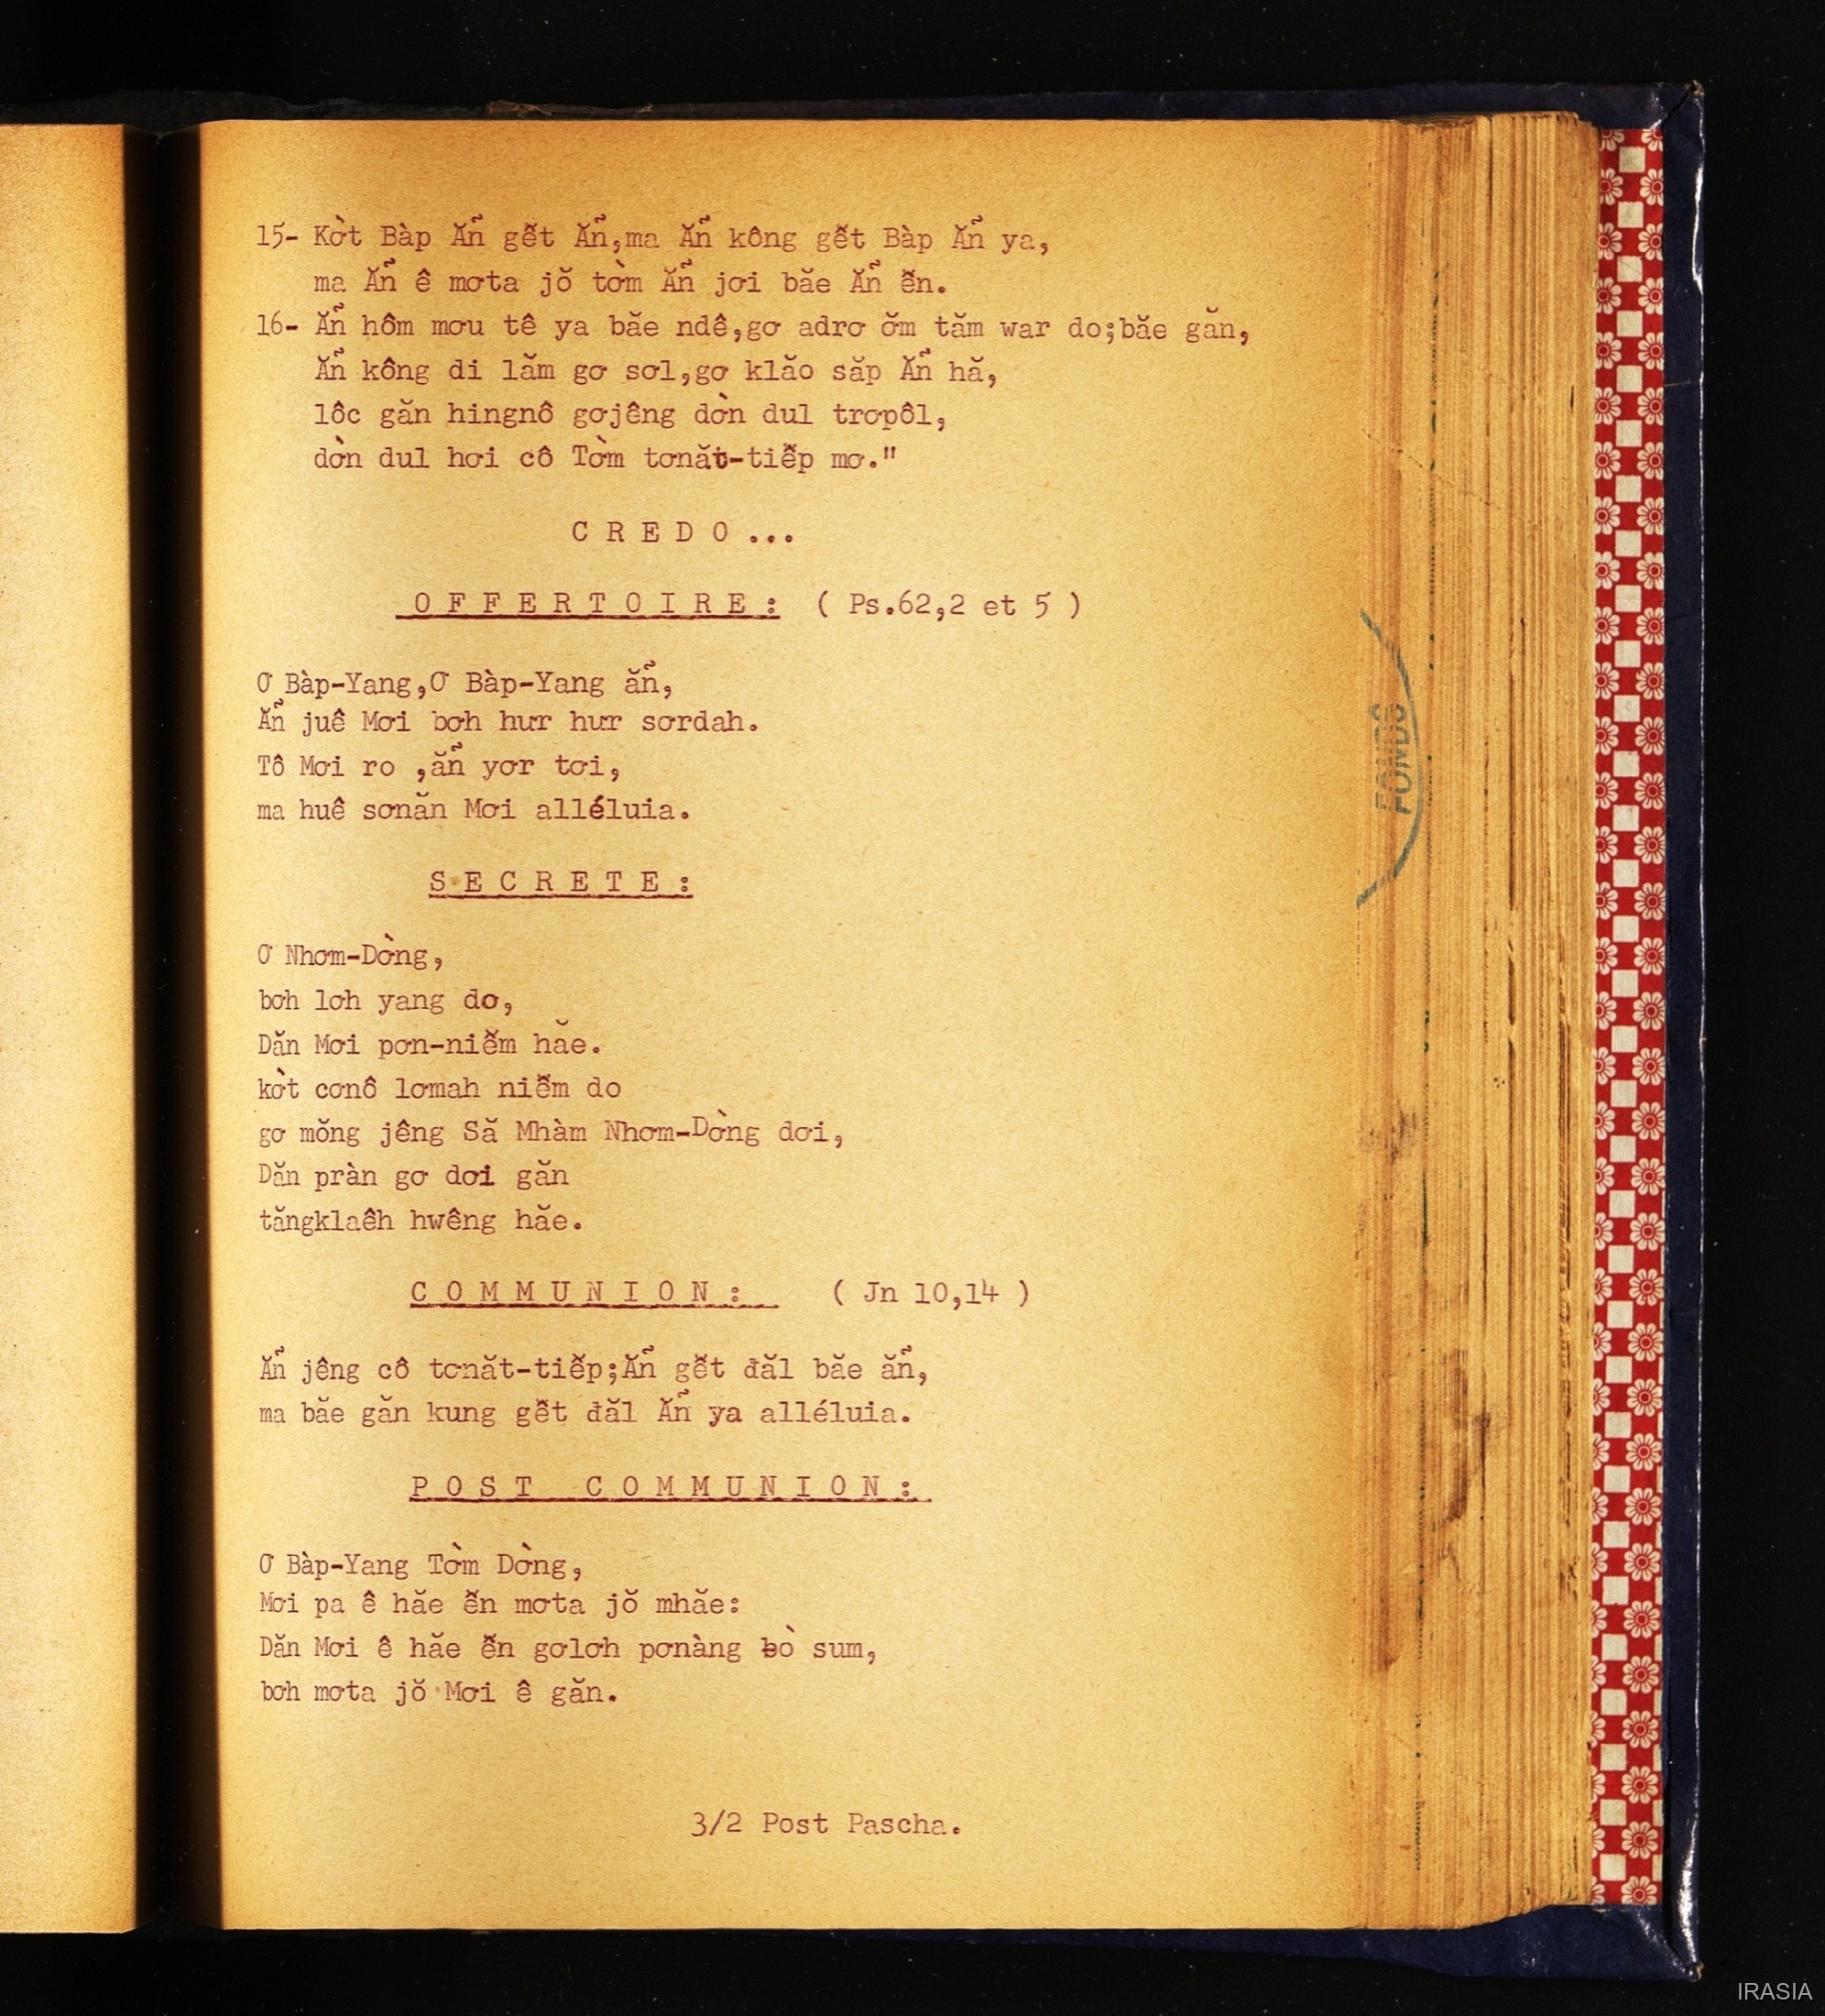 15- Kờt Bàp Ăñ gễt Ăñ,ma Ăñ kông gễt Bàp Ăñ ya,
ma Ăñ ê mơta jŏ tờm Ăñ jơi băe Ăñ ễn.
16- Ăñ hôm mơu tê ya băe ndê,gơ adrơ ơ̆m tăm war do;băe găn,
Ăñ kông di lăm gơ sơl,gơ klăo săp Ăñ hă,
lôc găn hingnô gơjêng dờn dul trơpôl,
dờn dul hơi cô Tờm tơnăt-tiễp mơ."
C R E D O ...
O F F E R T O I R E : ( Ps.62,2 et 5 )
Ơ Bàp-Yang,Ơ Bàp-Yang ăñ,
Ăñ juê Mơi bơh hưr hưr sơrdah.
Tô Mơi ro ,ăñ yơr tơi,
ma huê sơnăn Mơi alléluia.
S E C R E T E :
Ơ Nhơm-Dờng,
bơh lơh yang dơ,
Dăn Mơi pơn-niễm hăe.
kờt cơnô lơmah niễm do
gơ mŏng jêng Să Mhàm Nhơm-Dờng dơi,
Dăn pràn gơ dơi găn
tăngklaêh hwêng hăe.
C O M M U N I O N : ( Jn 10,14 )
Ăñ jêng cô tơnăt-tiễp;Ăñ gễt đăl băe ăñ,
ma băe găn kung gễt đăl Ăñ ya alléluia.
P O S T C O M M U N I O N :
Ơ Bàp-Yang Tờm Dờng,
Mơi pa ê hăe ễn mơta jŏ mhăe:
Dăn Mơi ê hăe ễn gơlơh pơnàng bò sum,
bơh mơta jŏ Mơi ê găn.
3/2 Post Pascha.
FONDS
IRASIA